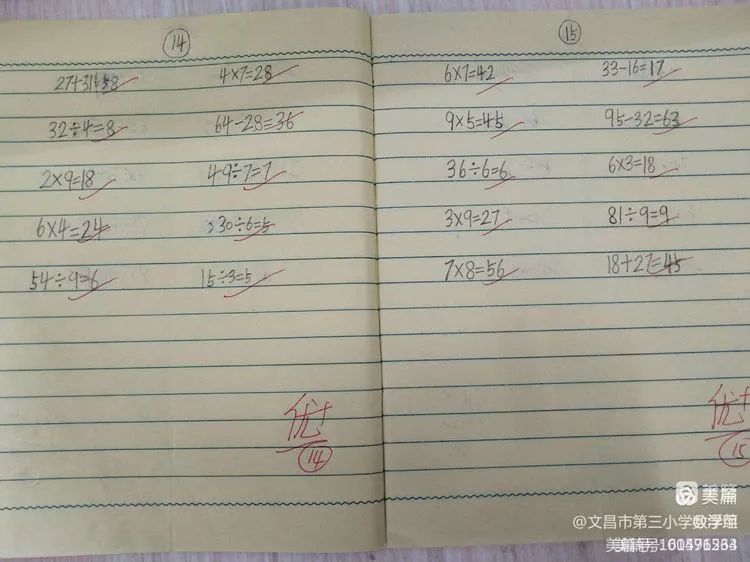 ⑭
27+31=58 4×7=28
32÷4=8 64-28=36
2×9=18 49÷7=7
6×4=24 30÷6=5
54÷9=6 15÷3=5
优+
⑭
⑮
6×7=42 33-16=17
9×5=45 95-32=63
36÷6=6 6×3=18
3×9=27 81÷9=9
7×8=56 18+27=45
优+
⑮
美篇
@文昌市第三小学数学组
美篇号